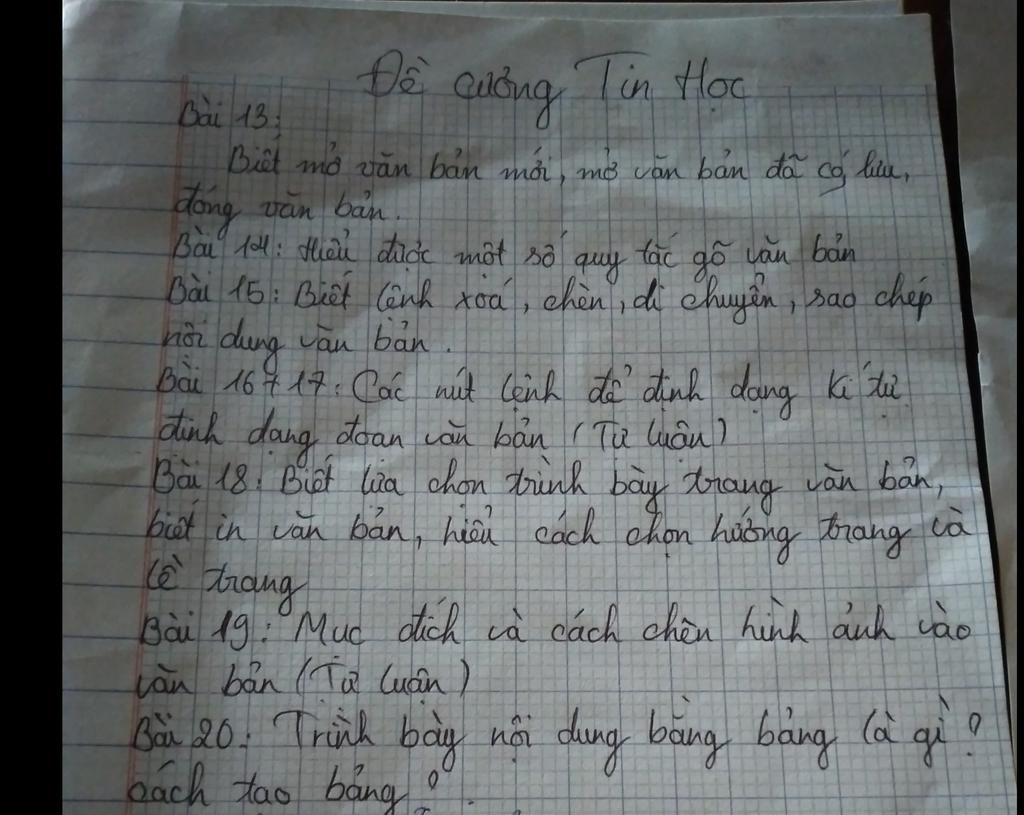 Đề cương Tin Học
Bài 13:
Biết mở văn bản mới, mở văn bản đã có lưu,
đóng văn bản.
Bài 14: Hiểu được một số quy tắc gõ văn bản
Bài 15: Biết lệnh xoá, chèn, di chuyển, sao chép
nội dung văn bản.
Bài 16+17: Các nút lệnh để định dạng kí tự
định dạng đoạn văn bản (Tự luận)
Bài 18: Biết lựa chọn trình bày trang văn bản,
biết in văn bản, hiểu cách chọn hướng trang và
lề trang
Bài 19: Mục đích và cách chèn hình ảnh vào
văn bản (Tự luận)
Bài 20: Trình bày nội dung bằng bảng là gì?
cách tạo bảng?